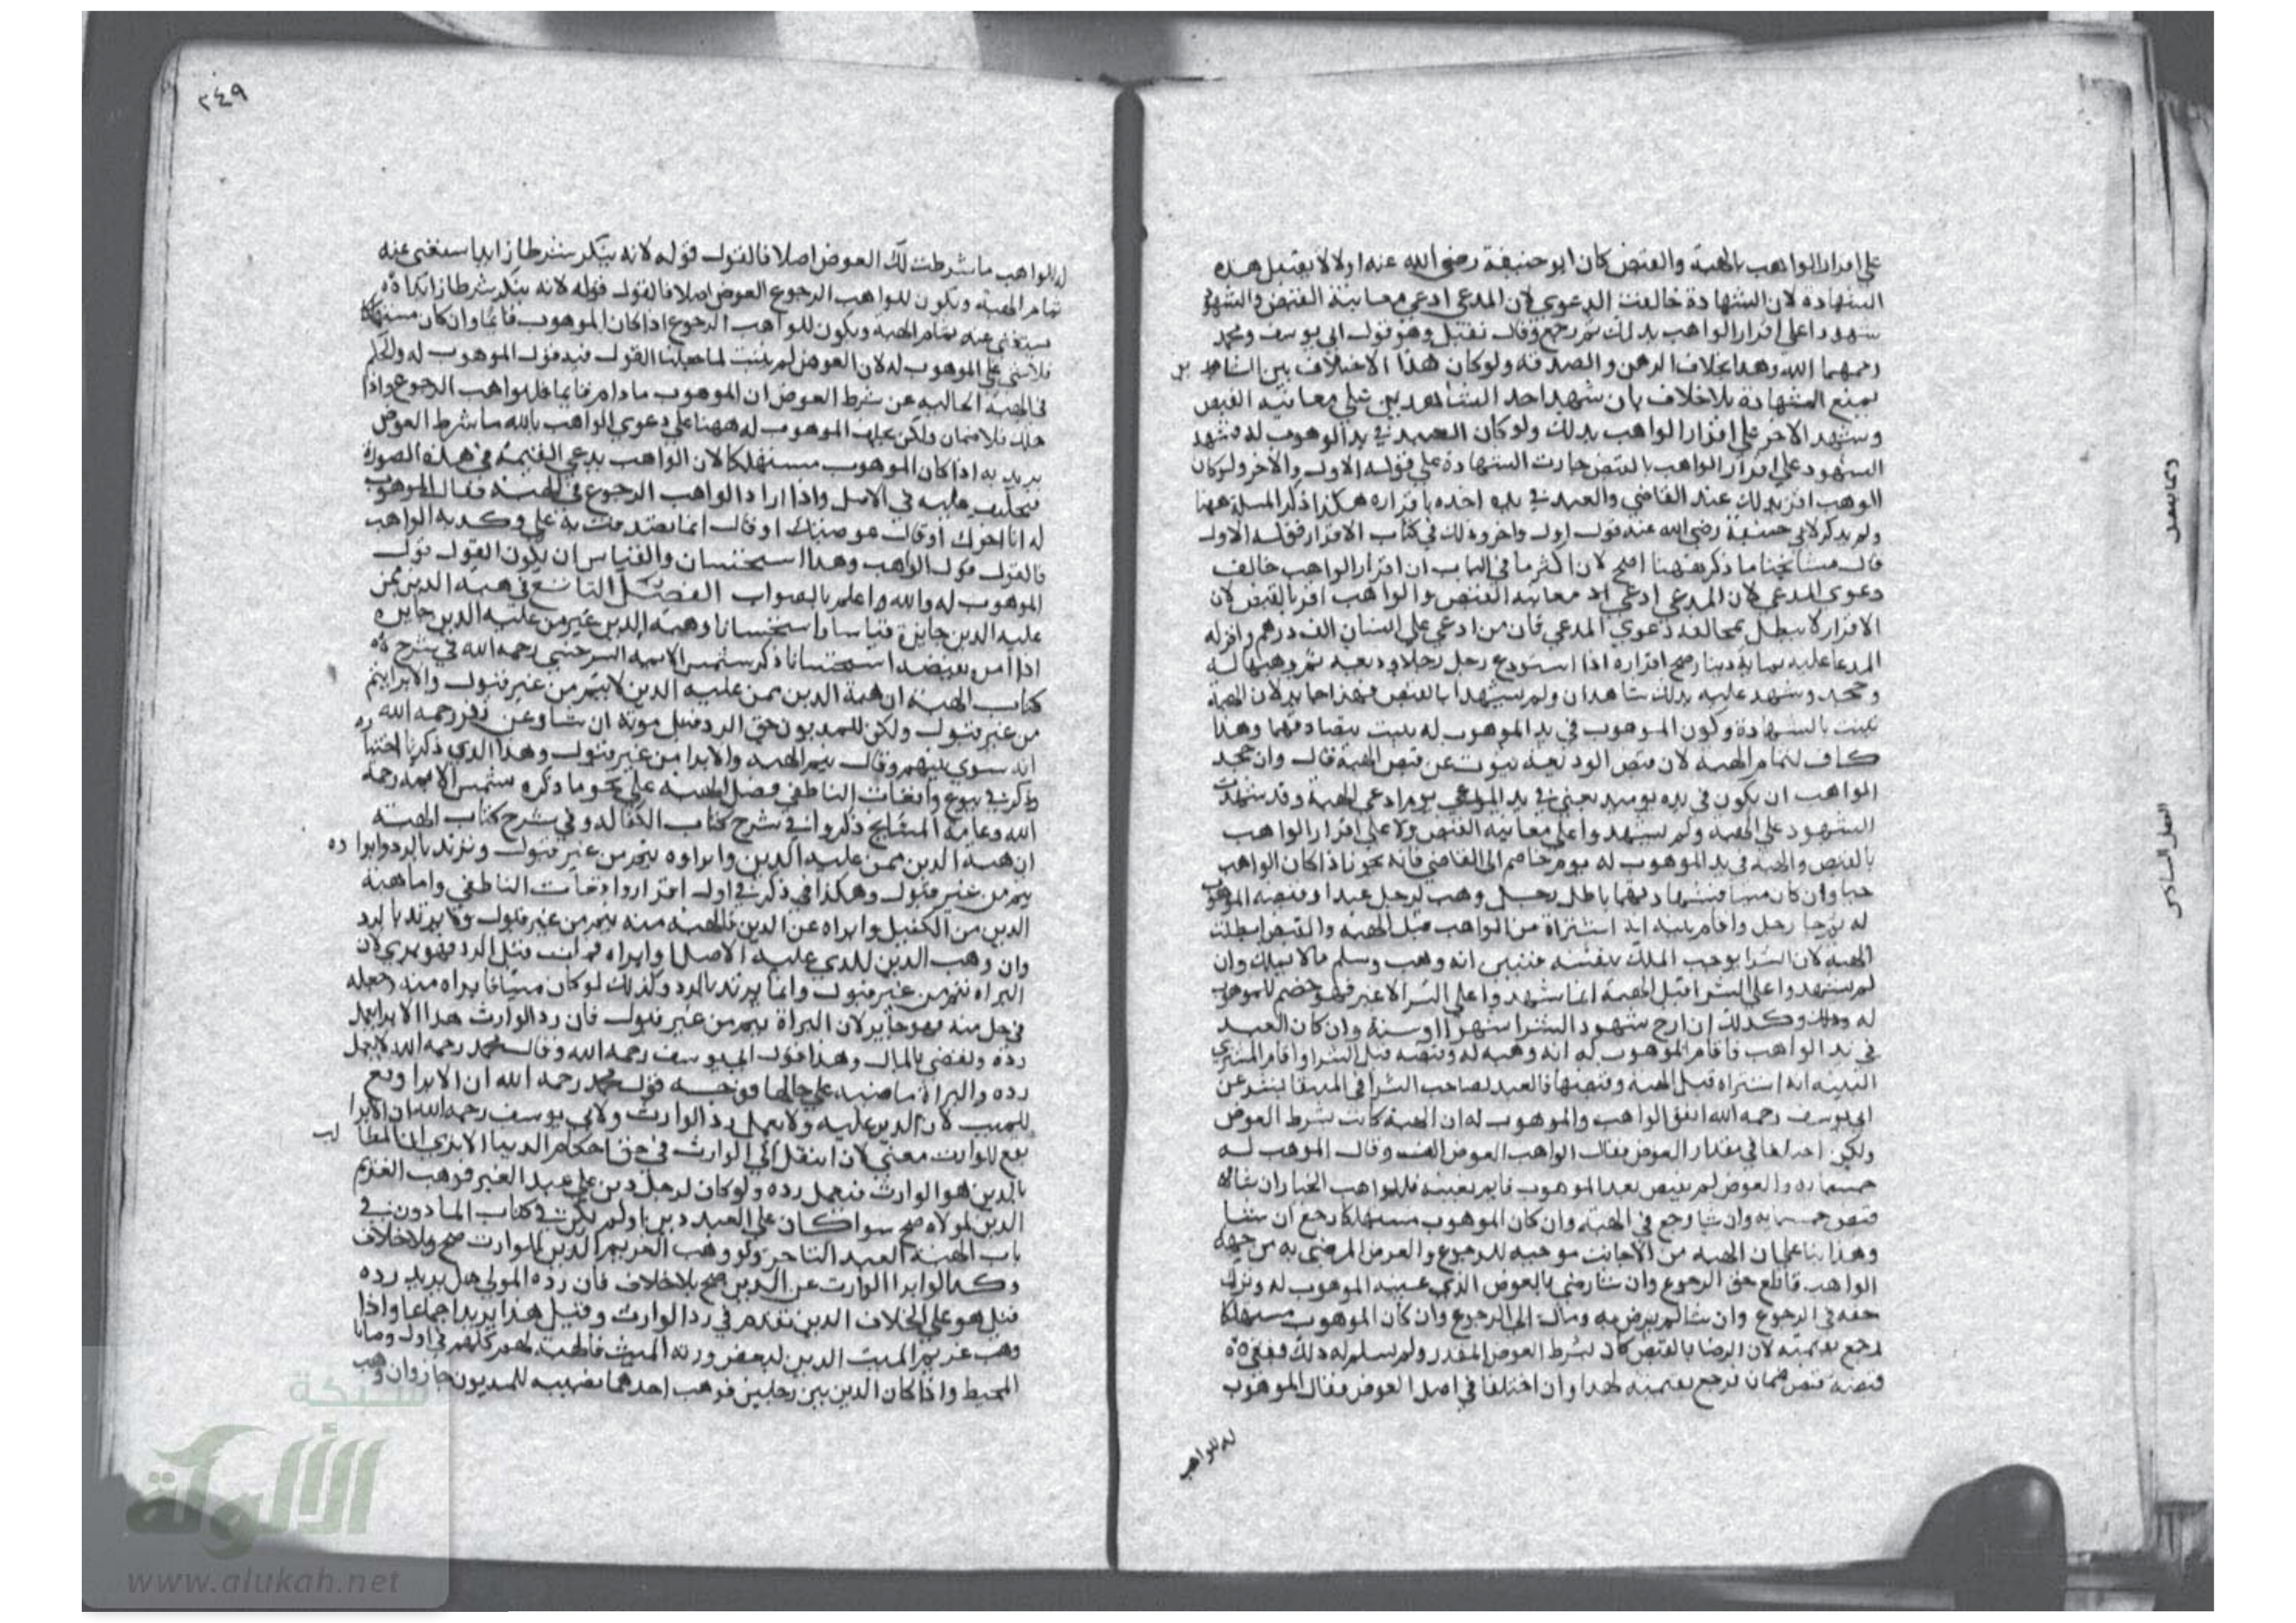 على اقرار الواهب بالهبة والقبض كان ابو حنيفة رضي الله عنه اولا لا يقبل هذه
الشهادة لان الشهادة خالفت الدعوي لان المدعي ادعي معاينة القبض والشهود
شهدوا على اقرار الواهب بذلك ثم رجع وقال تقبل وهو قول ابي يوسف ومحمد
رحمهما الله وهذا بخلاف الرهن والصدقة ولو كان هذا الاختلاف بين الشاهد ين
يمنع الشهادة بلا خلاف بان شهد احد الشاهدين على معاينة القبض
وشهد الاخر على اقرار الواهب بذلك ولو كان العبد في يد الموهوب له فشهد
الشهود على اقرار الواهب بالقبض جازت الشهادة على قوله الاول والاخر ولو كان
الوهب اقر بذلك عند القاضي والعبد في يده اخذه باقراره هكذا ذكر المسئلة ههنا
ولم يذكر لابي حنيفة رضي الله عنه قول اول واخر وذلك في كتاب الاقرار قوله الاول
قال مشايخنا ما ذكر ههنا اصح لان اكثر ما في الباب ان اقرار الواهب خالف
دعوى المدعي لان المدعي ادعي معاينة القبض والواهب اقر بالقبض لان
الاقرار لا يبطل بمخالفة دعوي المدعي فان من ادعي على انسان الف درهم واقر له
المدعا عليه بماية دينار صح اقراره اذا استودع رجل رجلا وديعة ثم وهبها له
وجحد وشهد عليه بذلك شاهدان ولم يشهدا بالقبض فهذا جايز لان الهبة
تثبت بالشهادة وكون الموهوب في يد الموهوب له يثبت بتصادقهما وهذا
كاف لتمام الهبة لان قبض الوديعة ينوب عن قبض الهبة قال وان جحد
الواهب ان يكون في يده يوميذ يعني في يد المودعي يوم ادعي الهبة وقد شهدت
الشهود على الهبة ولم يشهدوا على معاينة القبض ولا على اقرار الواهب
بالقبض والهبة في يد الموهوب له يوم خاصم الى القاضي فانه يجوز اذا كان الواهب
حيا وان كان ميتا فشهادتهما باطل رجل وهب لرجل عبدا وقبضه الموهوب
له ثم جا رجل واقام بينة انه اشتراه من الواهب قبل الهبة والقبض ابطلت
الهبة لان الشرا يوجب الملك بنفسه فتبين انه وهب وسلم مالا يملك وان
لم يشهدوا على الشرا قبل الهبة انما شهدوا على الشرا لا غير فهو خصم للموهوب
له وكذلك ان ارخ شهود الشرا شهرا او سنة وان كان العبد
في يد الواهب فاقام الموهوب له انه وهبه له وقبضه قبل الشرا واقام المشتري
البينة انه اشتراه قبل الهبة وقبضها فالعبد لصاحب الشرا في المنتقا بشر عن
ابي يوسف رحمه الله اتفق الواهب والموهوب له ان الهبة كانت بشرط العوض
ولكن اختلفا في مقدار العوض فقال الواهب العوض الف وقال الموهب له
خمسمايه والعوض لم يقبض بعد الموهوب قايم بعينه فللواهب الخيار ان شاء
قبض خمسمايه وان شا رجع في الهبة وان كان الموهوب مستهلكا رجع ان شا
وهذا بناء على ان الهبة من الاجانب موجبه للرجوع والعوض المرضي به من جهة
الواهب قاطع حق الرجوع وان شا رضي بالعوض الذي عينه الموهوب له وترك
حقه في الرجوع وان شا لم يرض به ومال الى الرجوع وان كان الموهوب مستهلكا
رجع بقيمته لان الرضا بالقبض كان بشرط العوض المقدر ولم يسلم له ذلك فبقي
قبضه قبض ضمان فرجع بقيمته لهذا وان اختلفا في اصل العوض فقال الموهوب
له للواهب
٢٤٩
له للواهب ما شرطت لك العوض اصلا فالقول قوله لانه ينكر شرطا زايدا يستغنى عنه
تمام الهبة ويكون للواهب الرجوع العوض اصلا فالقول قوله لانه ينكر شرطا زايدا
يستغنى عنه تمام الهبة ويكون للواهب الرجوع اذا كان الموهوب قائما وان كان مستهلكا
فلا شي على الموهوب له لان العوض لم يثبت لما جعلنا القول فيه قول الموهوب له والحكم
في الهبة الخالية عن شرط العوض ان الموهوب ما دام قايما فللواهب الرجوع واذا
هلك فلا ضمان ولكن يحلف الموهوب له ههنا على دعوي الواهب بالله ما شرط العوض
يريد به اذا كان الموهوب مستهلكا لان الواهب يدعي القيمة في هذه الصورة
فيحلف عليه في الاصل واذا اراد الواهب الرجوع في الهبة فقال الموهوب
له انا اخوك او قال عوضتك او قال انما تصدقت به علي وكذبه الواهب
فالقول قول الواهب وهذا استحسان والقياس ان يكون القول قول
الموهوب له والله واعلم بالصواب الفصل التاسع في هبة الدين ممن
عليه الدين جايزة قياسا واستحسانا وهبة الدين غير من عليه الدين جايزه
اذا امره بقبضه استحسانا ذكر شمس الايمه السرخسي رحمه الله في شرح
كتاب الهبة ان هبة الدين ممن عليه الدين لا يتم من غير قبول والابرا يتم
من غير قبول ولكن للمديون حق الرد قبل موته ان شا وعن زفر رحمه الله
انه سوى بينهم وقال يتم الهبه والابرا من غير قبول وهذا الذي ذكرنا اختيا ره
وذكر في بيوع واقعات الناطفي فصل الهبة على نحو ما ذكره شمس الايمه رحمه
الله وعامة المشايخ ذكروا في شرح كتاب الكفاله وفي شرح كتاب الهبة
ان هبة الدين ممن عليه الدين وابراوه يتم من غير قبول وترتد بالرد وابراوا ده
يتم من غير قبول وهكذا في ذكر في اول اقرار واقعات الناطفي واما هبة
الدين من الكفيل وابراه عن الدين فالهبة منه يتم من غير قبول ولا يرتد بالرد
وان وهب الدين للذي عليه الاصل وابراه فمات قبل الرد فهو بري لان
البراه تتم من غير قبول وانما يرتد بالرد وكذلك لو كان ميتا فابراه منه او جعله
في حل منه فهو جايز لان البراة يتم من غير قبول فان رد الوارث هذا الابرا يعمل
رده ويقضي بالمال وهذا قول ابي يوسف رحمه الله وقال محمد رحمه الله لا يعمل
رده والبراة ماضيه على حالها فوجه قول محمد رحمه الله ان الابرا وقع
للميت لان الدين عليه ولا يعمل رد الوارث ولابي يوسف رحمه الله ان الابرا
يقع للوارث معني لان انتقل الى الوارث في حق احكام الدنيا الا يرى ان المطا لب
بالدين هو الوارث فيعمل رده ولو كان لرجل دين على عبد الغير فوهب الغريم
الدين لمولاه صح سوا كان على العبد دين او لم يكن في كتاب الماذون في
باب الهبة العبد التاجر ولو وهب الغريم الدين للوارث صح بلا خلاف
وكذا لو ابرا الوارث عن الدين صح بلا خلاف فان رده المولي هل يرتد رده
قيل هو على الخلاف الذي تقدم في رد الوارث وقيل هذا يرتد اجماعا واذا
وهب غريم الميت الدين لبعض ورثة الميت فالهبة لهم كلهم في اول وصايا
المحيط واذا كان الدين بين رجلين فوهب احدهما نصيبه للمديون جاز وان وهب
الفصل السادس
شبكة
الألوكة
www.alukah.net